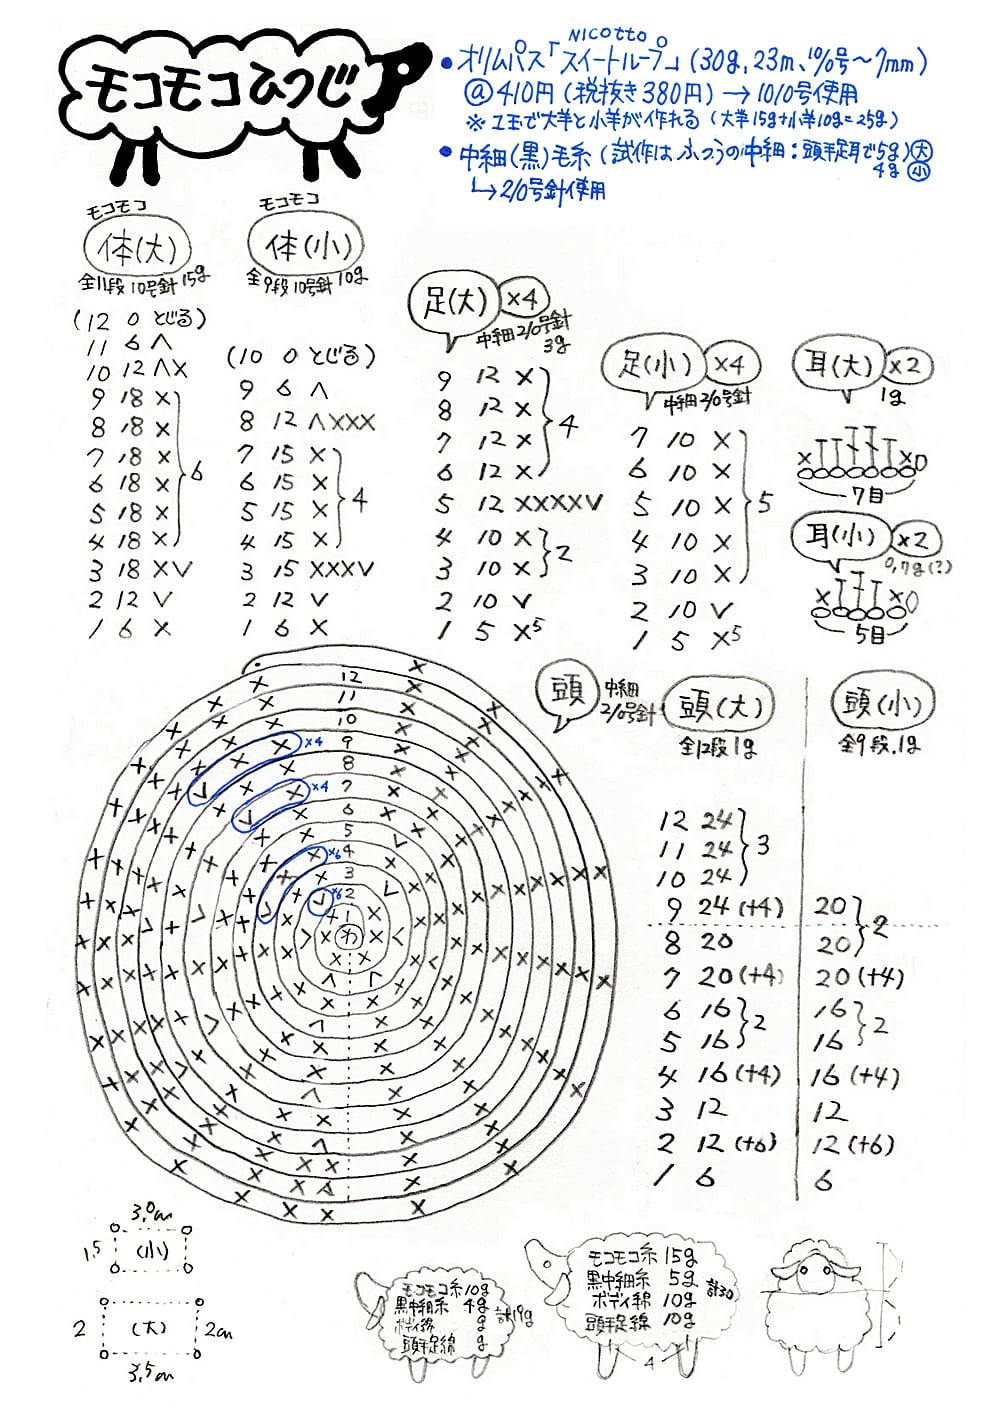 モコモコひつじ
NICOtto。
• オリムパス「スイートループ」(30g, 23m、10/0号〜7mm)
@410円(税抜き380円)→10/0号使用
※1玉で大羊と小羊が作れる(大羊15g+小羊10g=25g)
• 中細(黒)毛糸(試作はふつうの中細:頭手足耳で5g)大
4g 小
↳2/0号針使用
モコモコ
体(大)
全11段 10号針 15g
(12 0 とじる)
11 6 ∧
10 12 ∧×
9 18 ×
8 18 ×
7 18 ×
6 18 × 6
5 18 ×
4 18 ×
3 18 ×∨
2 12 ∨
1 6 ×
モコモコ
体(小)
全9段 10号針 10g
(10 0 とじる)
9 6 ∧
8 12 ∧×××
7 15 ×
6 15 ×
5 15 × 4
4 15 ×
3 15 ×××∨
2 12 ∨
1 6 ×
足(大) ×4
中細2/0号針
3g
9 12 ×
8 12 ×
7 12 × 4
6 12 ×
5 12 ××××∨
4 10 ×
3 10 × 2
2 10 ∨
1 5 ×5
足(小) ×4
中細2/0号針
7 10 ×
6 10 ×
5 10 × 5
4 10 ×
3 10 ×
2 10 ∨
1 5 ×5
耳(大) ×2
1g
7目
耳(小) ×2
0,7g(?)
5目
12
11
10
9 ×4
8
7 ×4
6
5
4 ×6
3
2 ×6
1
わ
頭 中細
2/0号針
頭(大)
全12段 1g
12 24
11 24 3
10 24
9 24 (+4)
8 20
7 20 (+4)
6 16
5 16 2
4 16 (+4)
3 12
2 12 (+6)
1 6
頭(小)
全9段.1g
20
20 2
20 (+4)
16
16 2
16 (+4)
12
12 (+6)
6
3,0cm
1,5 (小)
2 (大) 2cm
3,5cm
モコモコ糸 10g
黒中細糸 4g 計19g
ボディ綿 g
頭手足綿 g
モコモコ糸 15g
黒中細糸 5g 計30
ボディ綿 10g
頭手足綿 10g
4